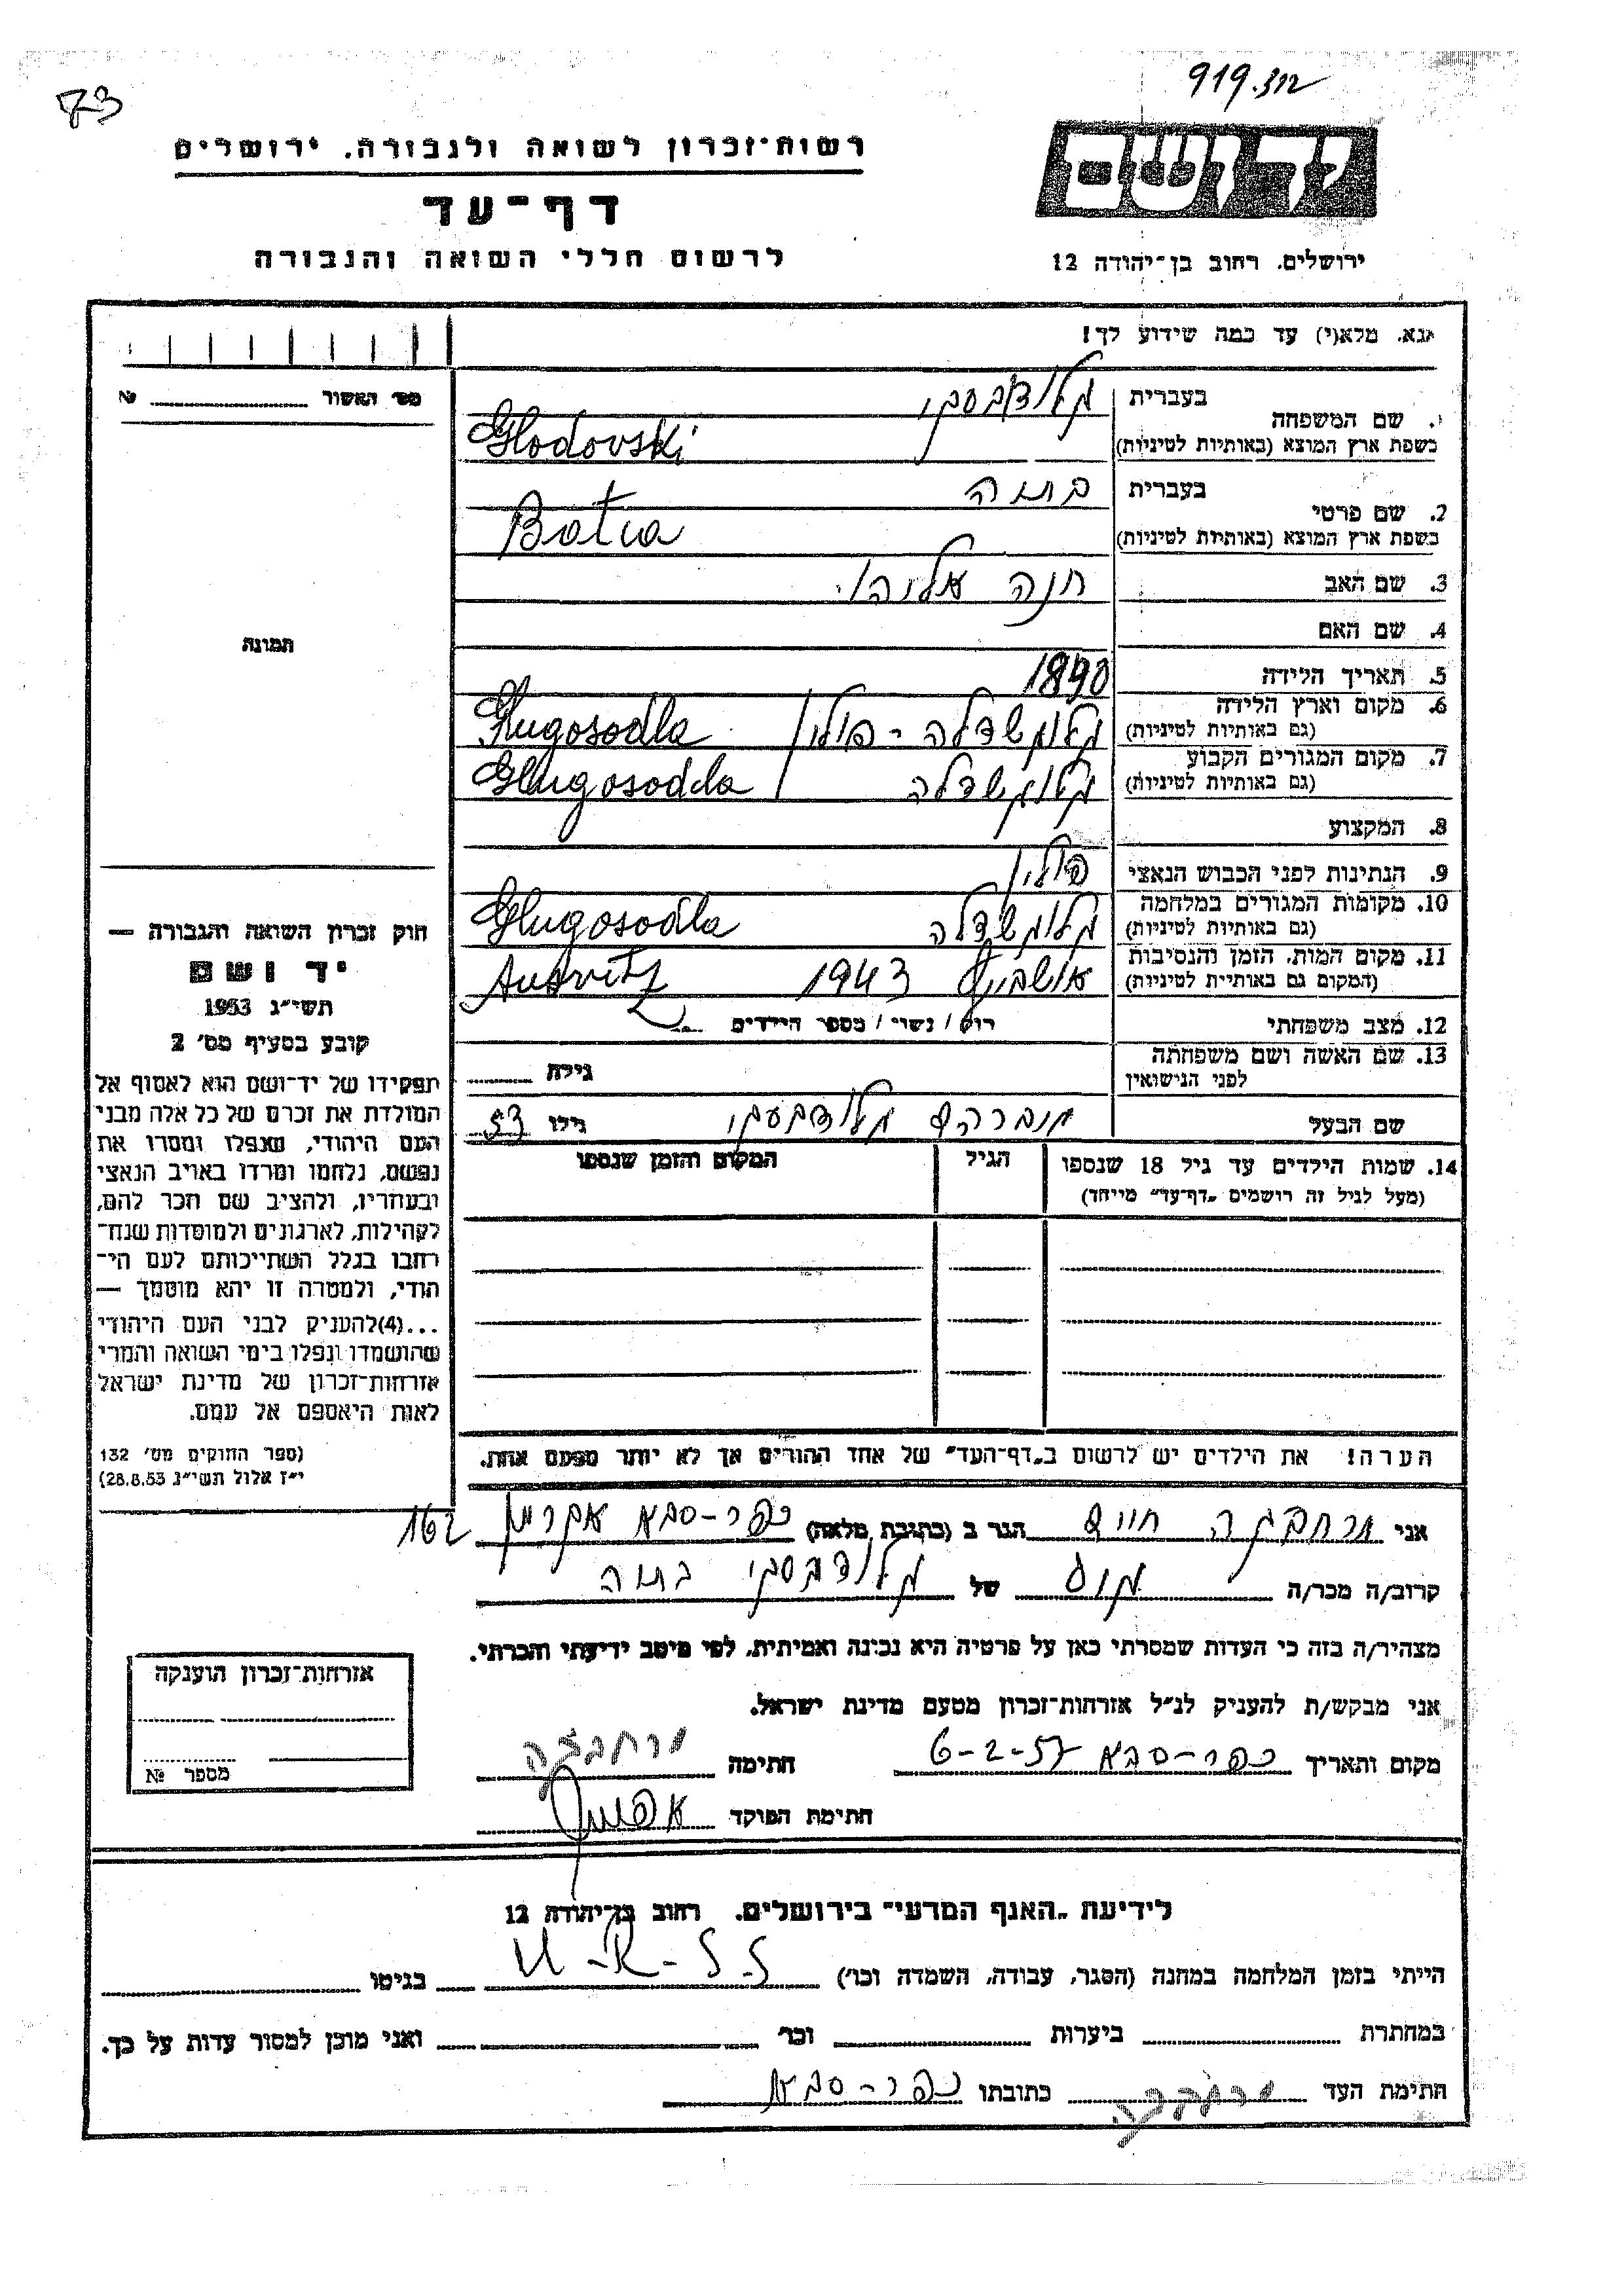 919.
73
יד ושם
רשות־זכרון לשואה ולגבורה. ירושלים
דף־עד
לרשום חללי השואה והגבורה
ירושלים. רחוב בן־יהודה 12
נא. מלא(י) עד כמה שידוע לך!
מס׳ האשור № 
1. שם המשפחה בעברית גלודובסקי
בשפת ארץ המוצא (באותיות לטיניות) Glodovski
2. שם פרטי בעברית בתיה
בשפת ארץ המוצא (באותיות לטיניות) Batia
3. שם האב חנה אליהו
4. שם האם
5. תאריך הלידה 1890
6. מקום וארץ הלידה פולין Glugosodla
(גם באותיות לטיניות)
7. מקום המגורים הקבוע Glugosodla
(גם באותיות לטיניות)
8. המקצוע
9. הנתינות לפני הכבוש הנאצי פולין
10. מקומות המגורים במלחמה Glugosodla
(גם באותיות לטיניות)
11. מקום המות. הזמן והנסיבות 1943
(המקום גם באותיות לטיניות)
12. מצב משפחתי רוק / נשוי / מספר הילדים
13. שם האשה ושם משפחתה גילה
לפני הנישואין
שם הבעל גלודובסקי גילו 53
תמונה
14. שמות הילדים עד גיל 18 שנספו הגיל המקום והזמן שנספו
(מעל לגיל זה רושמים „דף־עד” מיוחד)
חוק זכרון השואה והגבורה —
יד ושם
תשי״ג 1953
קובע בסעיף מס׳ 2
תפקידו של יד־ושם הוא לאסוף אל
המולדת את זכרם של כל אלה מבני
העם היהודי, שנפלו ומסרו את
נפשם, נלחמו ומרדו באויב הנאצי
ובעוזריו, ולהציב שם וזכר להם,
לקהילות, לארגונים ולמוסדות שנח־
רבו בגלל השתייכותם לעם הי־
הודי, ולמטרה זו יהא מוסמך —
...(4)להעניק לבני העם היהודי
שהושמדו ונפלו בימי השואה והמרי
אזרחות־זכרון של מדינת ישראל
לאות היאספם אל עמם.
(ספר החוקים מס׳ 132
י״ז אלול תשי״ג 28.8.53)
הערה! את הילדים יש לרשום ב„דף־העד” של אחד ההורים אך לא יותר מפעם אחת.
אני חיים הגר ב (כתובת מלאה) כפר-סבא 162
קרוב/ה מכר/ה של גלודובסקי בתיה
מצהיר/ה בזה כי העדות שמסרתי כאן על פרטיה היא נכונה ואמיתית, לפי מיטב ידיעתי והכרתי.
אני מבקש/ת להעניק לנ״ל אזרחות־זכרון מטעם מדינת ישראל.
מקום ותאריך כפר-סבא 6-2-57 חתימה
חתימת הפוקד
אזרחות־זכרון הוענקה
מספר №
לידיעת „האגף המדעי” בירושלים. רחוב בן־יהודה 12
הייתי בזמן המלחמה במחנה (הסגר, עבודה, השמדה וכו׳) U-R-S-S בגיטו
במחתרת ביערות וכו׳ ואני מוכן למסור עדות על כך.
חתימת העד כתובתו כפר-סבא